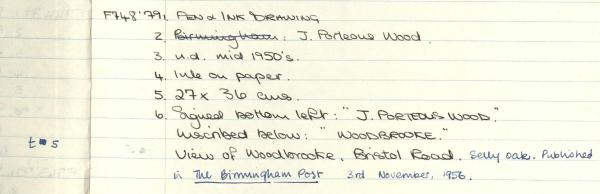 F748'79 1. PEN & INK DRAWING
2. Birmingham: J. Porteous Wood.
3. n.d. mid 1950's.
4. Ink on paper.
5. 27 x 36 cms.
6. Signed bottom left: "J. PORTEOUS WOOD."
Inscribed below: "WOODBROOKE."
View of Woodbrooke, Bristol Road, Selly Oak. Published
in The Birmingham Post 3rd November, 1956.